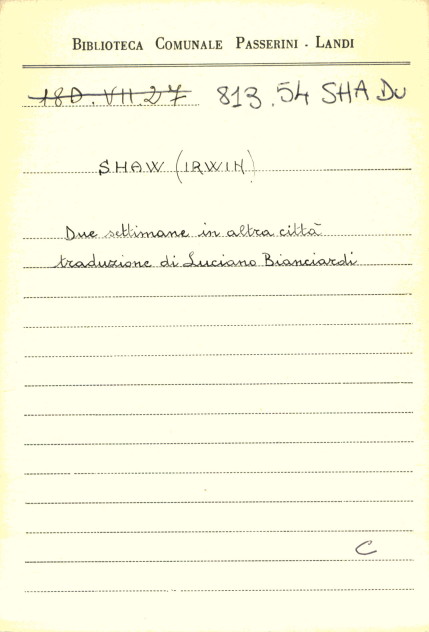 BIBLIOTECA COMUNALE PASSERINI - LANDI
180.VII.27 813.54 SHA Du
SHAW (IRWIN)
Due settimane in altra città
traduzione di Luciano Bianciardi
C